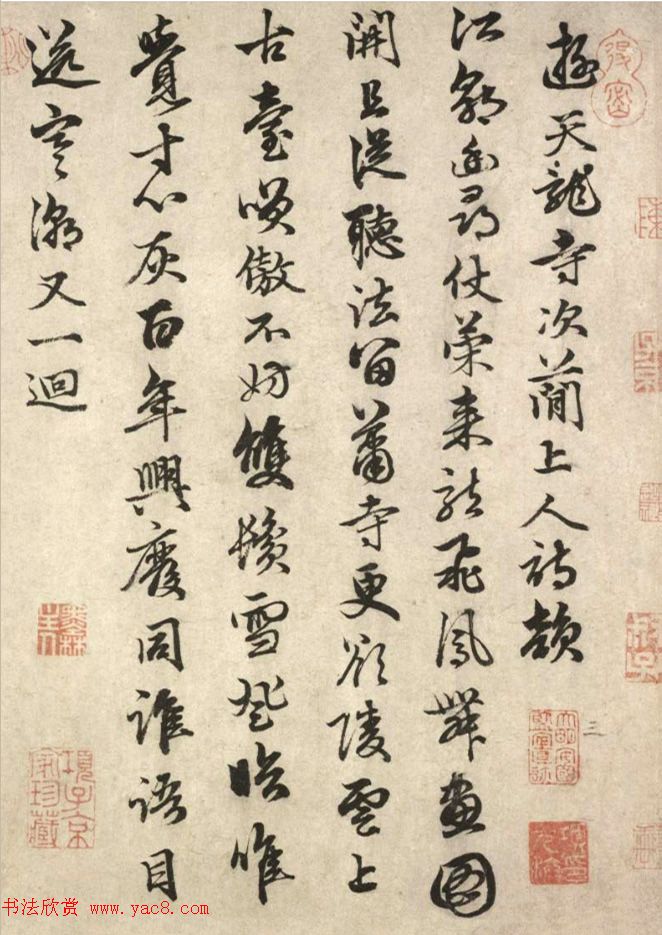 遊天龍寺次蕳上人詩韻
江郭幽尋仗策来龍飛鳳舞畫圖
開且從聽法留蕭寺更欲陵雲上
古臺傲不妨雙鬢雪登臨唯
覺寸心灰百年興廢同誰語目
送寒潮又一迴
三
項子京家珍藏
书法欣赏 www.yac8.com